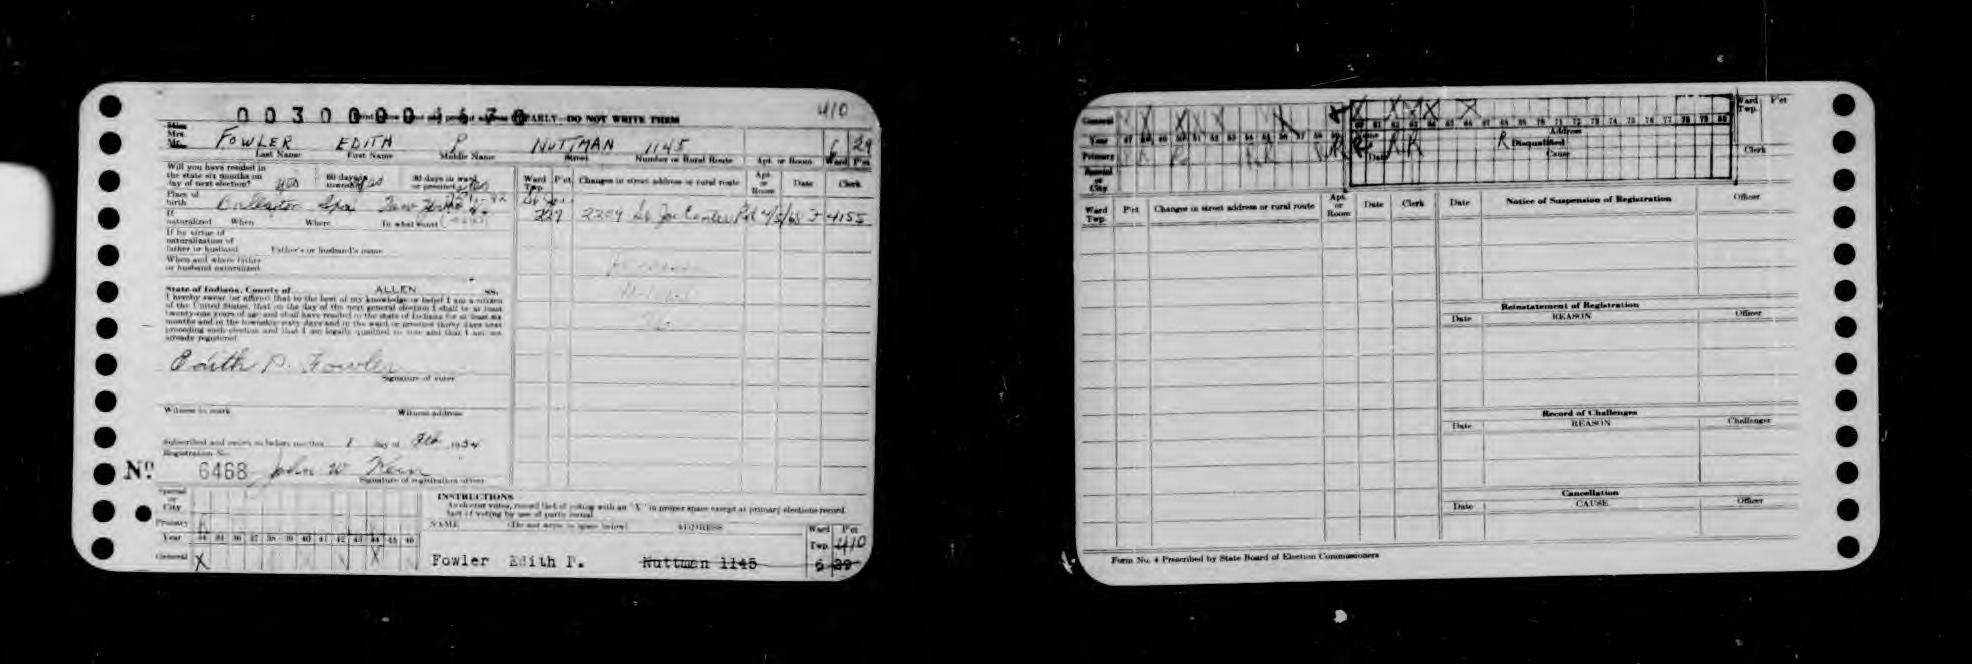 410
EARLY—DO NOT WRITE THEM
Miss
Mrs.
Mr. FOWLER EDITH P NUTTMAN 1145 6 29
Last Name First Name Middle Name Street Number or Rural Route Apt. or Room Ward P'ct
Will you have resided in the state six months on day of next election? yes 60 days in township? yes 30 days in ward or precinct? yes
Ward Twp. P'ct Changes in street address or rural route Apt. or Room Date Clerk
Place of birth Ballston Spa New York
227 2209 St Joe Center Rd 4/5/65 4155
If naturalized When Where In what court
If by virtue of naturalization of father or husband Father's or husband's name
When and where father or husband naturalized
State of Indiana, County of ALLEN ss.
I hereby swear (or affirm) that to the best of my knowledge or belief I am a citizen
of the United States, that on the day of the next general election I shall be at least
twenty-one years of age and shall have resided in the state of Indiana for at least six
months and in the township sixty days and in the ward or precinct thirty days next
preceding such election and that I am legally qualified to vote and that I am not
already registered
Edith P. Fowler
Signature of voter
Witness to mark Witness address
Subscribed and sworn to before me this 1 day of Feb 1934
Registration No.
No. 6468 John W Kern
Signature of registration officer
Special or City
Primary
Year 34 35 36 37 38 39 40 41 42 43 44 45 46
General X X
INSTRUCTIONS
As elector votes, record fact of voting with an "X" in proper space except at primary elections record
fact of voting by use of party initial
NAME (Do not write in space below) ADDRESS Ward Twp. P'ct
410
Fowler Edith P. Nuttman 1145 6 29
General
Year 47 48 49 50 51 52 53 54 55 56 57 58 59 60 61 62 63 64 65 66 67 68 69 70 71 72 73 74 75 76 77 78 79 80
Primary
Special or City
Name Address
Date R Disqualified
Cause
Ward Twp. P'ct
Clerk
Ward Twp. P'ct Changes in street address or rural route Apt. or Room Date Clerk Date Notice of Suspension of Registration Officer
Reinstatement of Registration
Date REASON Officer
Record of Challenges
Date REASON Challenger
Cancellation
Date CAUSE Officer
Form No. 4 Prescribed by State Board of Election Commissioners